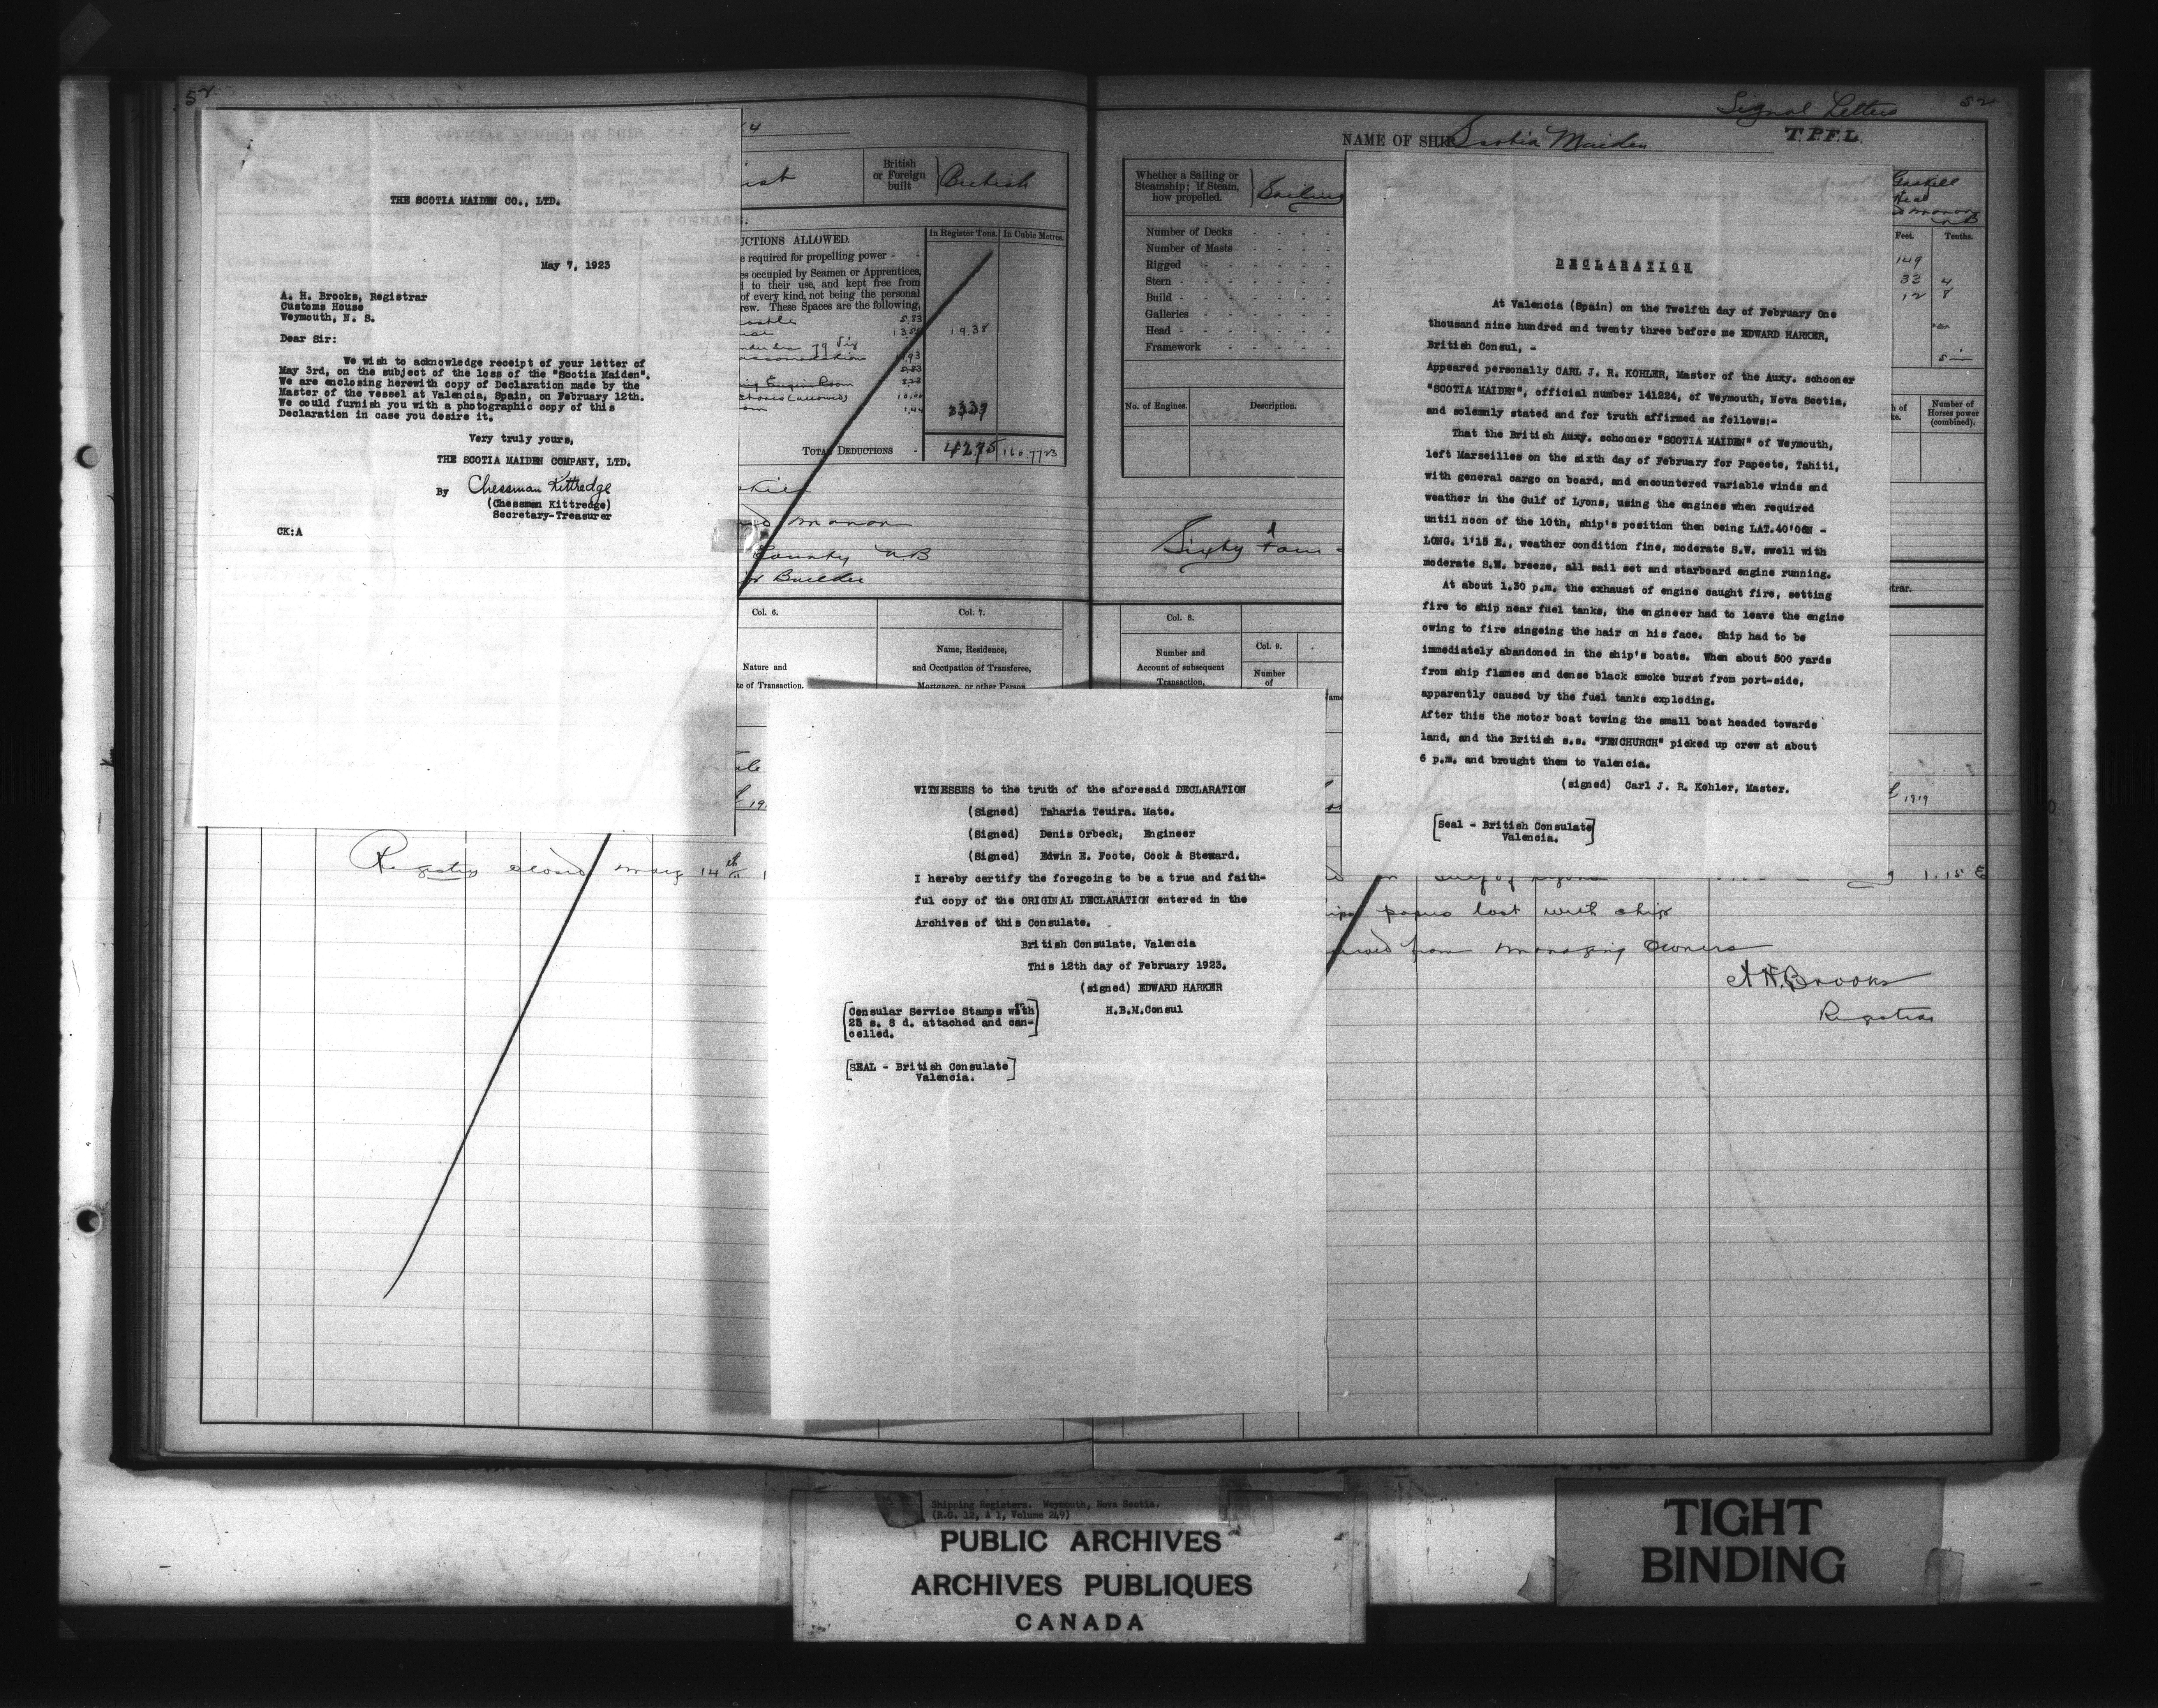 52
Signal Letters
52
NAME OF SHIP Scotia Maiden
T.P.F.L.
THE SCOTIA MAIDEN CO., LTD.
May 7, 1923
A. H. Brooks, Registrar
Customs House
Weymouth, N. S.
Dear Sir:
We wish to acknowledge receipt of your letter of
May 3rd, on the subject of the loss of the "Scotia Maiden".
We are enclosing herewith copy of Declaration made by the
Master of the vessel at Valencia, Spain, on February 12th.
We could furnish you with a photographic copy of this
Declaration in case you desire it.
Very truly yours,
THE SCOTIA MAIDEN COMPANY, LTD.
By Chessman Kittredge
(Chessman Kittredge)
Secretary-Treasurer
CK:A
British
or Foreign
built
British
UCTIONS ALLOWED.
In Register Tons.
In Cubic Metres.
e required for propelling power - -
es occupied by Seamen or Apprentices,
d to their use, and kept free from
of every kind, not being the personal
rew. These Spaces are the following,
19.38
TOTAL DEDUCTIONS -
42.75
County, N B
Builder
Col. 6.
Col. 7.
Nature and
te of Transaction.
Name, Residence,
and Occupation of Transferee,
Mortgagee, or other Person
Registry closed May 14th
Whether a Sailing or
Steamship; if Steam,
how propelled.
Sailing
Number of Decks - - - -
Number of Masts - - - -
Rigged - - - -
Stern - - - -
Build - - - -
Galleries - - - -
Head - - - -
Framework - - - -
No. of Engines.
Description.
Sixty four
Col. 8.
Col. 9.
Number and
Account of subsequent
Transaction,
Number
of
Gaskell
Head
Feet.
Tenths.
149
32 4
12 8
Number of
Horses power
(combined).
trar.
1919
DECLARATION
At Valencia (Spain) on the Twelfth day of February One
thousand nine hundred and twenty three before me EDWARD HARKER,
British Consul, -
Appeared personally CARL J. R. KOHLER, Master of the Auxy. schooner
"SCOTIA MAIDEN", official number 141224, of Weymouth, Nova Scotia,
and solemnly stated and for truth affirmed as follows:-
That the British Auxy. schooner "SCOTIA MAIDEN" of Weymouth,
left Marseilles on the sixth day of February for Papeete, Tahiti,
with general cargo on board, and encountered variable winds and
weather in the Gulf of Lyons, using the engines when required
until noon of the 10th, ship's position then being LAT.40'06N -
LONG. 1'15 E., weather condition fine, moderate S.W. swell with
moderate S.W. breeze, all sail set and starboard engine running.
At about 1.30 p.m. the exhaust of engine caught fire, setting
fire to ship near fuel tanks, the engineer had to leave the engine
owing to fire singeing the hair on his face. Ship had to be
immediately abandoned in the ship's boats. When about 500 yards
from ship flames and dense black smoke burst from port-side,
apparently caused by the fuel tanks exploding.
After this the motor boat towing the small boat headed towards
land, and the British s.s. "FENCHURCH" picked up crew at about
6 p.m. and brought them to Valencia.
(signed) Carl J. R. Kohler, Master.
[Seal - British Consulate
Valencia.]
WITNESSES to the truth of the aforesaid DECLARATION
(Signed) Taharia Teuira. Mate.
(Signed) Denis Orbeck, Engineer
(Signed) Edwin E. Foote, Cook & Steward.
I hereby certify the foregoing to be a true and faith-
ful copy of the ORIGINAL DECLARATION entered in the
Archives of this Consulate.
British Consulate, Valencia
This 12th day of February 1923.
(signed) EDWARD HARKER
H.B.M.Consul
[Consular Service Stamps with
25 s. 8 d. attached and can-
celled.]
[SEAL - British Consulate
Valencia.]
1.15 E
papers lost with ship
from managing Owners
A H. Brooks
Registrar
Shipping Registers. Weymouth, Nova Scotia.
(R.G. 12, A 1, Volume 249)
PUBLIC ARCHIVES
ARCHIVES PUBLIQUES
CANADA
TIGHT
BINDING